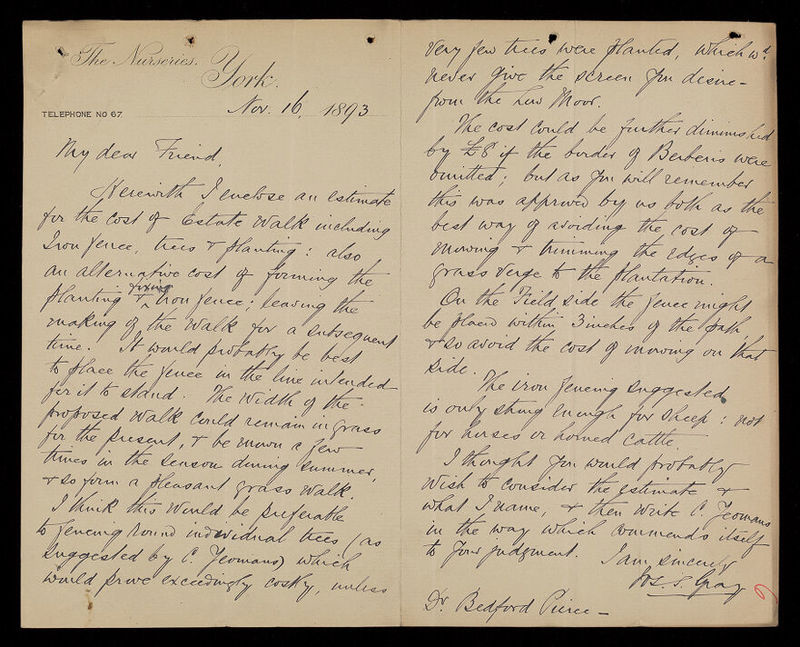 The Nurseries.
York.
TELEPHONE NO 67.
Nov. 16, 1893
My dear Friend,
Herewith I enclose an estimate
for the cost of Estate Walk including
Iron fence, trees & planting: also
an alternative cost of forming the
planting & fixing iron fence; leaving the
making of the Walk for a subsequent
time. It would probably be best
to place the fence in the line intended
for it to stand. The width of the
proposed walk could remain in grass
for the present, & be mown a few
times in the season during summer,
& so form a pleasant grass walk.
I think this would be preferable
to fencing round individual trees (as
suggested by C. Yeomans) which
would prove exceedingly costly, unless
very few trees were planted, which wd.
never give the screen you desire
from the Low Moor.
The cost could be further diminished
by £8 if the border of Berberis were
omitted; but as you will remember
this was approved by us both as the
best way of avoiding the cost of
mowing & trimming the edges of a
grass verge to the plantation.
On the Field side the fence might
be placed within 3 inches of the path
& so avoid the cost of mowing on that
side.
The iron fencing suggested
is only strong enough for sheep: not
for horses or horned cattle
I thought you would probably
wish to consider the estimate &
what I name, & then write C. Yeomans
in the way which commends itself
to your judgment. I am, sincerely
Dr. Bedford Pierce